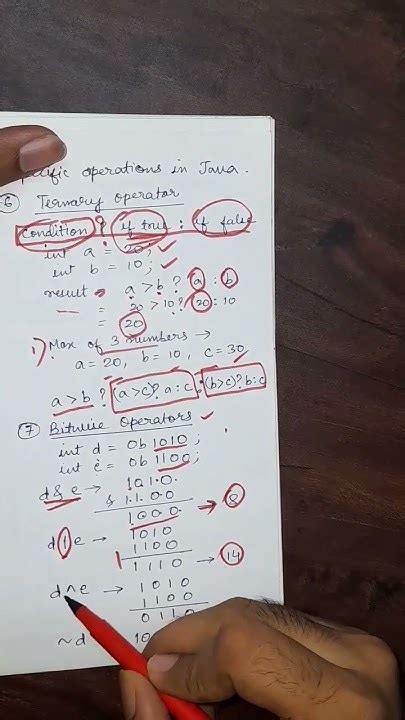 operations in Java.
⑥ Ternary operator
Condition ? if true : if false
int a = 20;
int b = 10;
result = a > b ? a : b
= 20 > 10 ? 20 : 10
= 20
1) Max of 3 numbers →
a = 20, b = 10, c = 30
a > b ? (a > c) ? a : c : (b > c) ? b : c
⑦ Bitwise Operators
int d = 0b 1010 ;
int e = 0b 1100 ;
d & e → 1 0 1 0
& 1 1 0 0
1 0 0 0 → 8
d | e → 1 0 1 0
1 1 0 0
1 1 1 0 → 14
d ^ e → 1 0 1 0
1 1 0 0
0 1 1 0
~ d 10